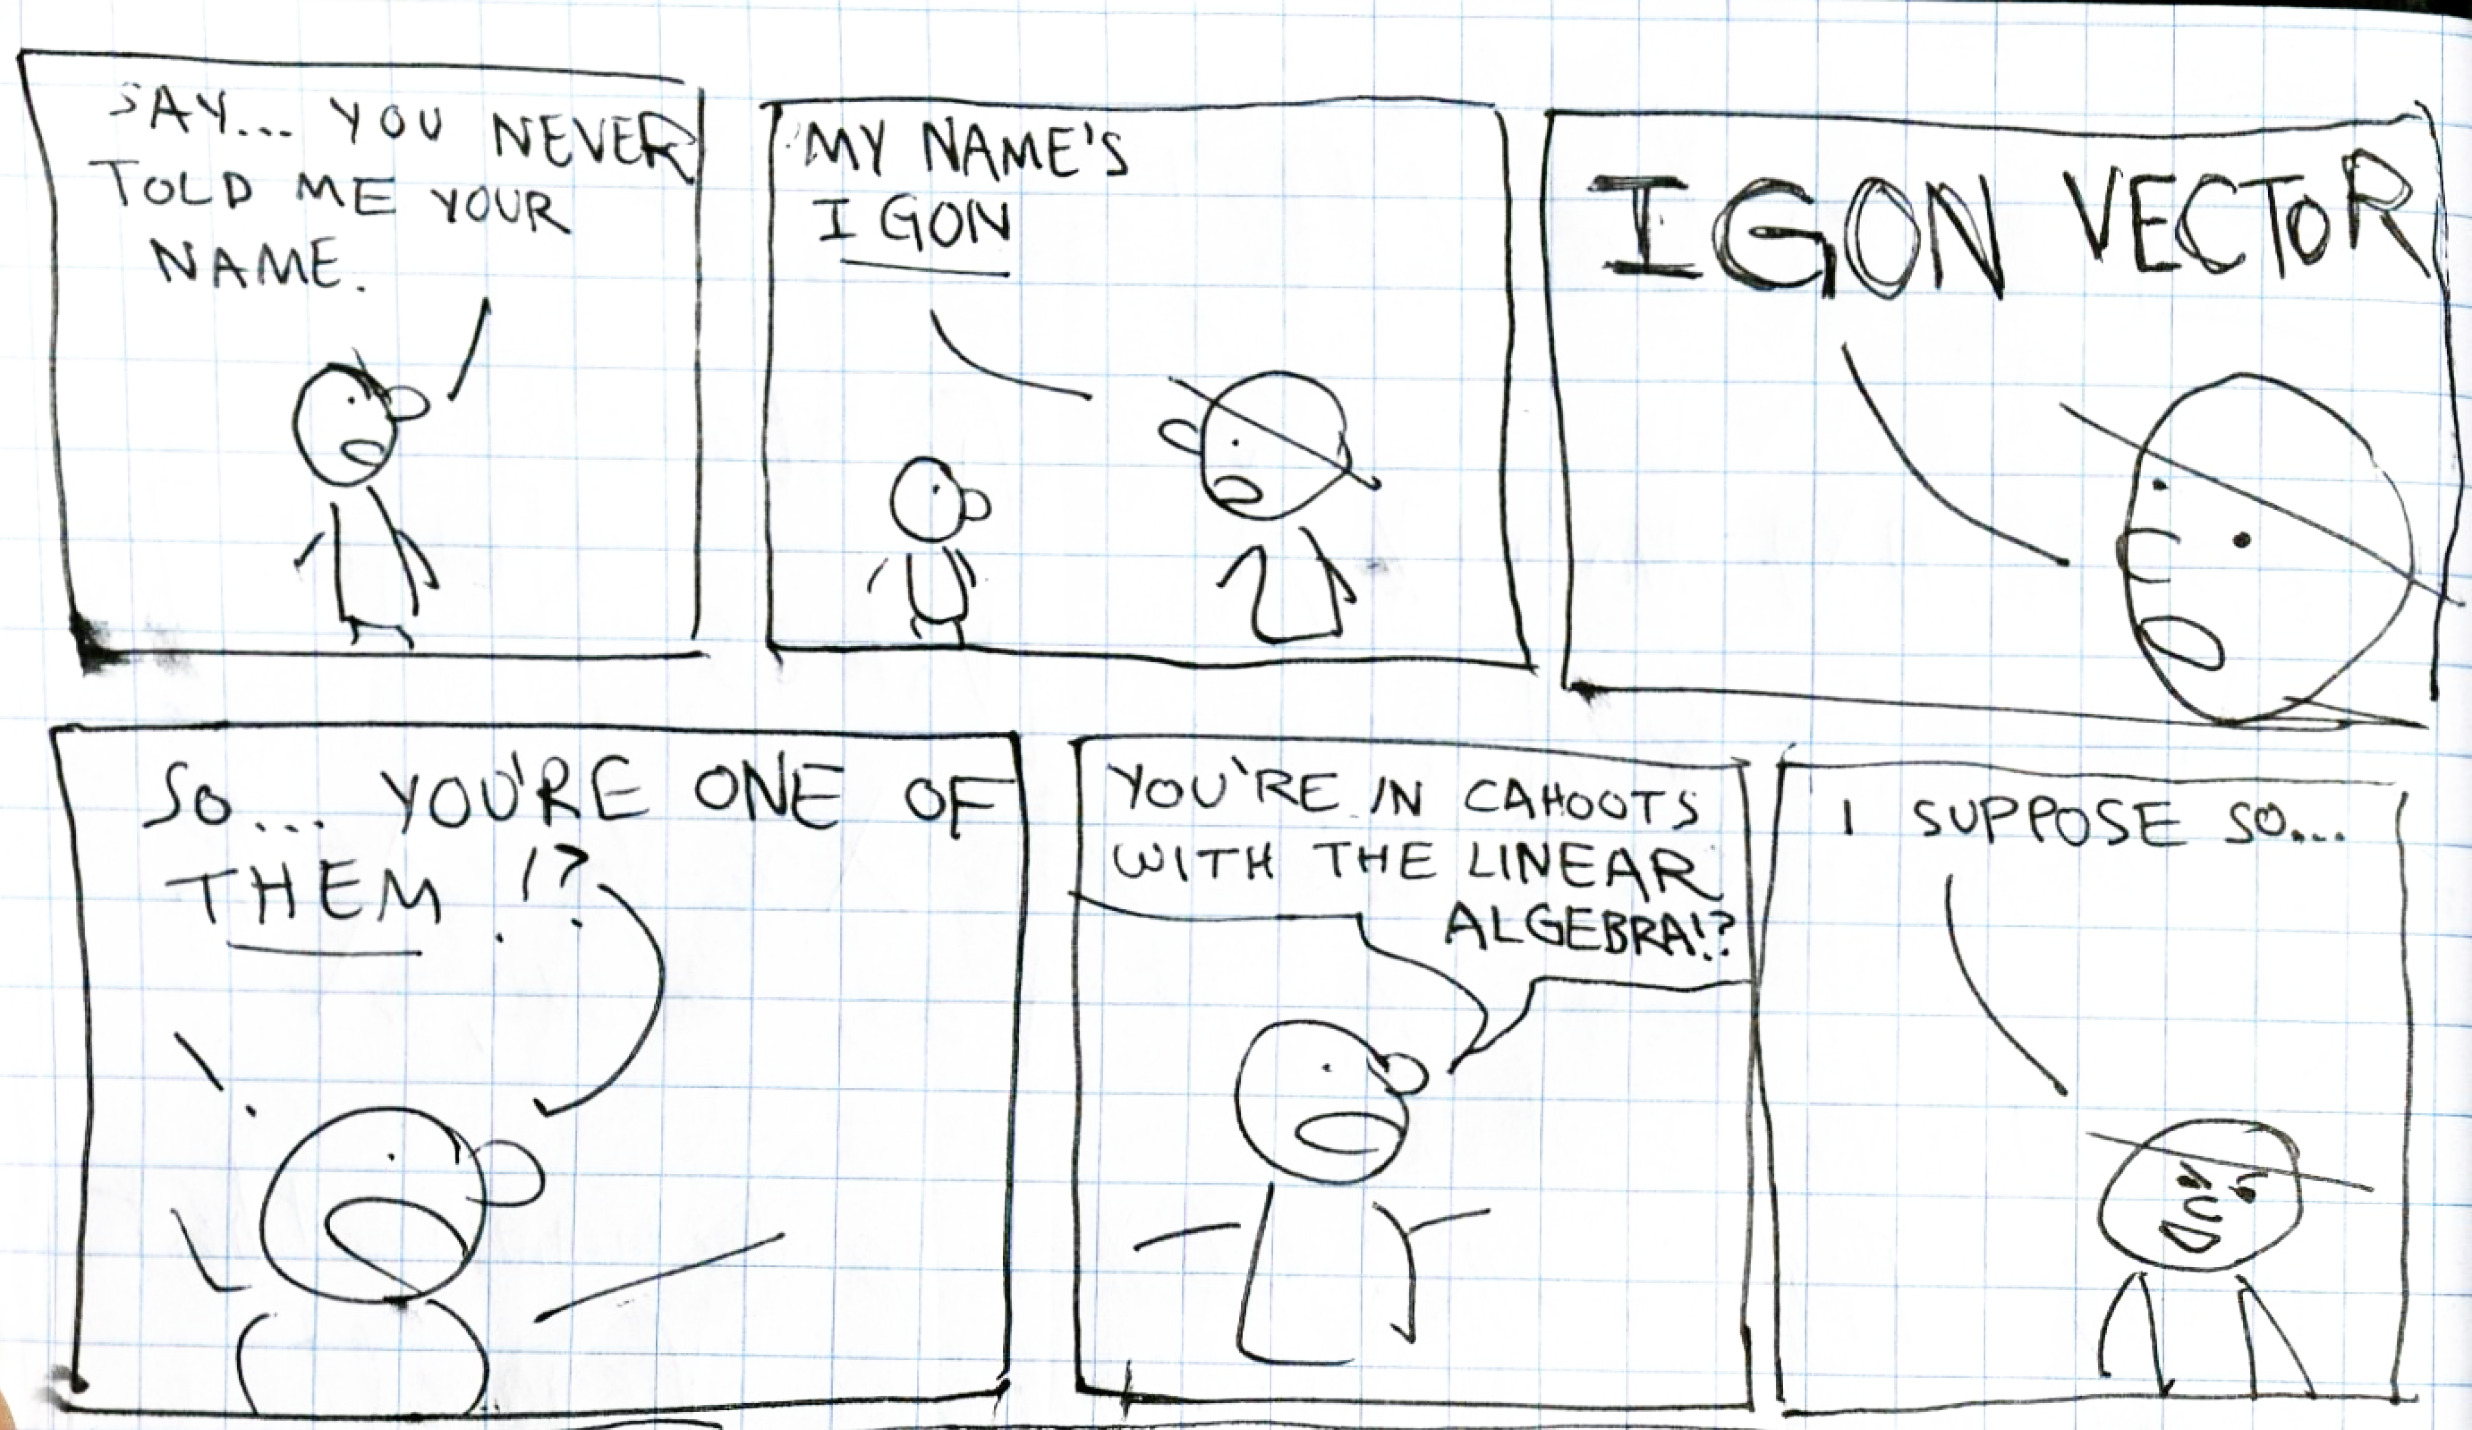 SAY... YOU NEVER
TOLD ME YOUR
NAME.
MY NAME'S
I GON
I GON VECTOR
SO... YOU'RE ONE OF
THEM !?
YOU'RE IN CAHOOTS
WITH THE LINEAR
ALGEBRA!?
I SUPPOSE SO...